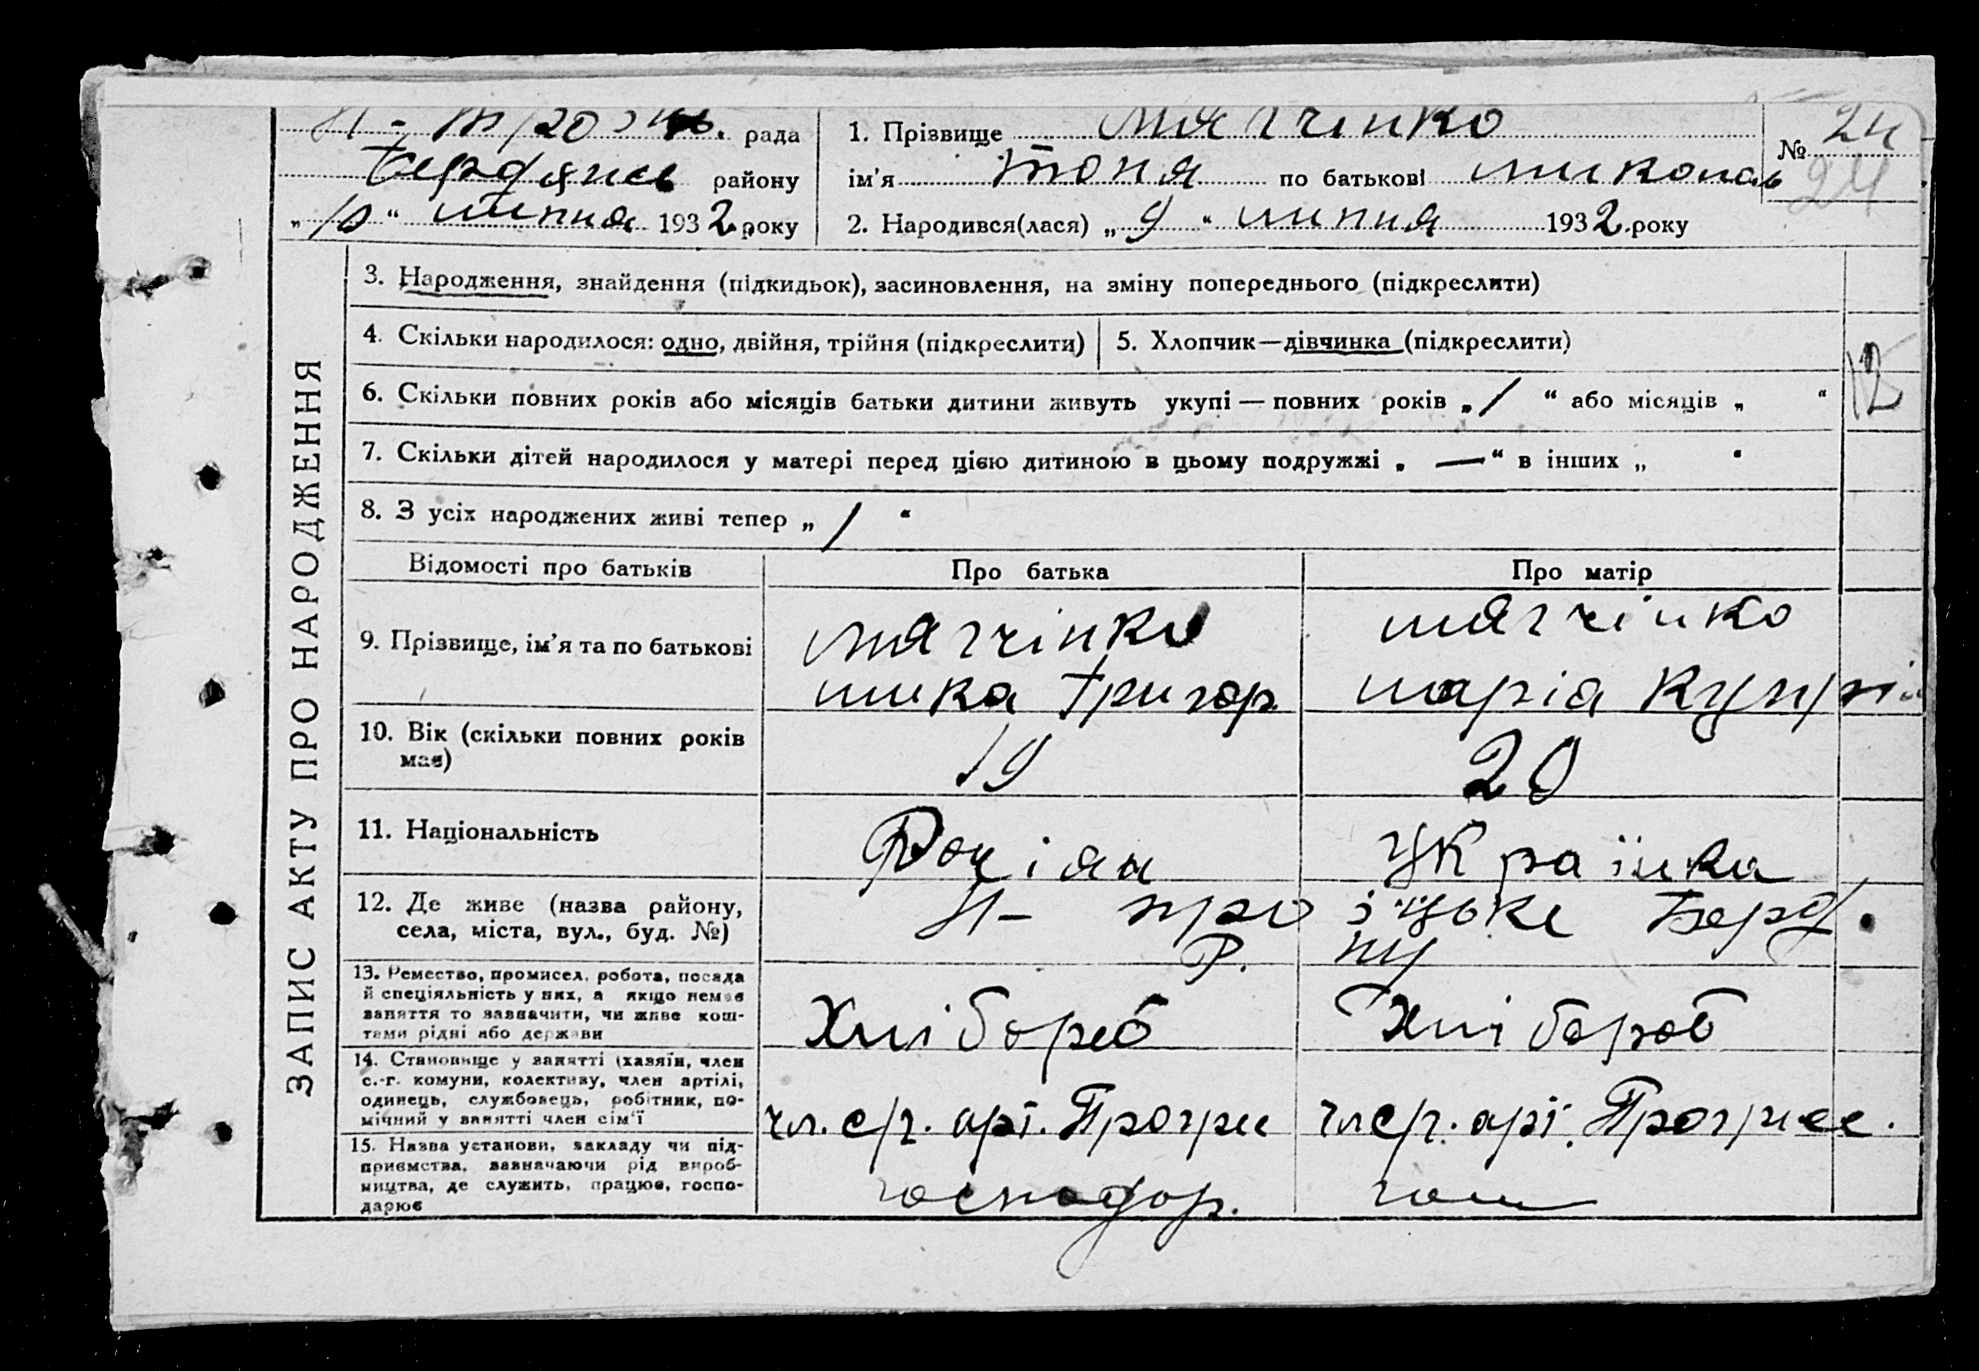 Н - Троїць. рада
Бердянсь району
„ 10 “ липня 1932 року
1. Прізвище Мягчінко
ім'я Тоня по батькові Микола
2. Народився(лася) „ 9 “ липня 1932 року
№ 24
24
ЗАПИС АКТУ ПРО НАРОДЖЕННЯ
3. Народження, знайдення (підкидьок), засиновлення, на зміну попереднього (підкреслити)
4. Скільки народилося: одно, двійня, трійня (підкреслити)
5. Хлопчик—дівчинка (підкреслити)
6. Скільки повних років або місяців батьки дитини живуть укупі — повних років „ 1 “ або місяців „ “
12
7. Скільки дітей народилося у матері перед цією дитиною в цьому подружжі „ — “ в інших „ “
8. З усіх народжених живі тепер „ 1 “
Відомості про батьків
Про батька
Про матір
9. Прізвище, ім'я та по батькові
Мягчінко
Мика Григор.
Мягчінко
Марія Купрі
10. Вік (скільки повних років
має)
19
20
11. Національність
Росіян
Українка
12. Де живе (назва району,
села, міста, вул., буд. №)
Н - Троїцьке Берд.
Р.
13. Ремество, промисел, робота, посада
й спеціяльність у них, а якщо немає
заняття то зазначити, чи живе кош-
тами рідні або держави
Хлібороб
Хлібороб
14. Становище у занятті (хазяїн, член
с.-г. комуни, колективу, член артілі,
одинець, службовець, робітник, по-
мічний у занятті член сім'ї
чл. с/г. арт. Прогрес
чл с/г. арт. Прогрес.
15. Назва установи, закладу чи під-
приємства, зазначаючи рід вироб-
ництва, де служить, працює, госпо-
дарює
господор.